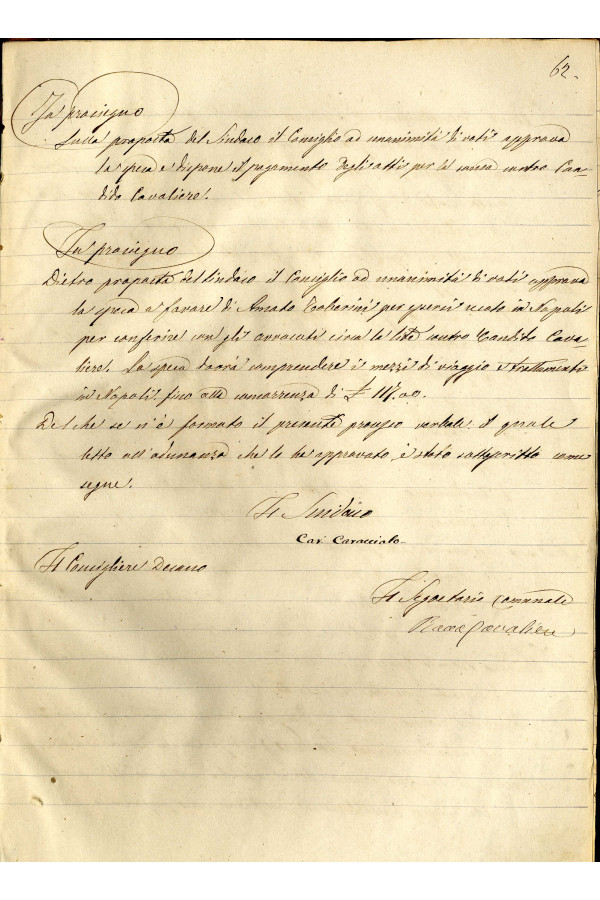 62.
In prosieguo
Sulla proposta del Sindaco il Consiglio ad unanimità di voti approva
la spesa e dispone il pagamento degli atti per la causa contro Can-
dido Cavaliere.
In prosieguo
Dietro proposta del Sindaco il Consiglio ad unanimità di voti approva
la spesa a favore di Amato per essersi recato in Napoli
per conferire con gli avvocati circa la lite contro Candido Cava-
liere. La spesa dovrà comprendere i mezzi di viaggio e trattamento
in Napoli, fino alla concorrenza di £ 117.00.
Del che se n'è formato il presente processo verbale il quale
letto all'adunanza che lo ha approvato è stato sottoscritto come
segue.
Il Sindaco
Cav. Caracciolo
Il Consigliere Decano
Il Segretario Comunale
Cavaliere